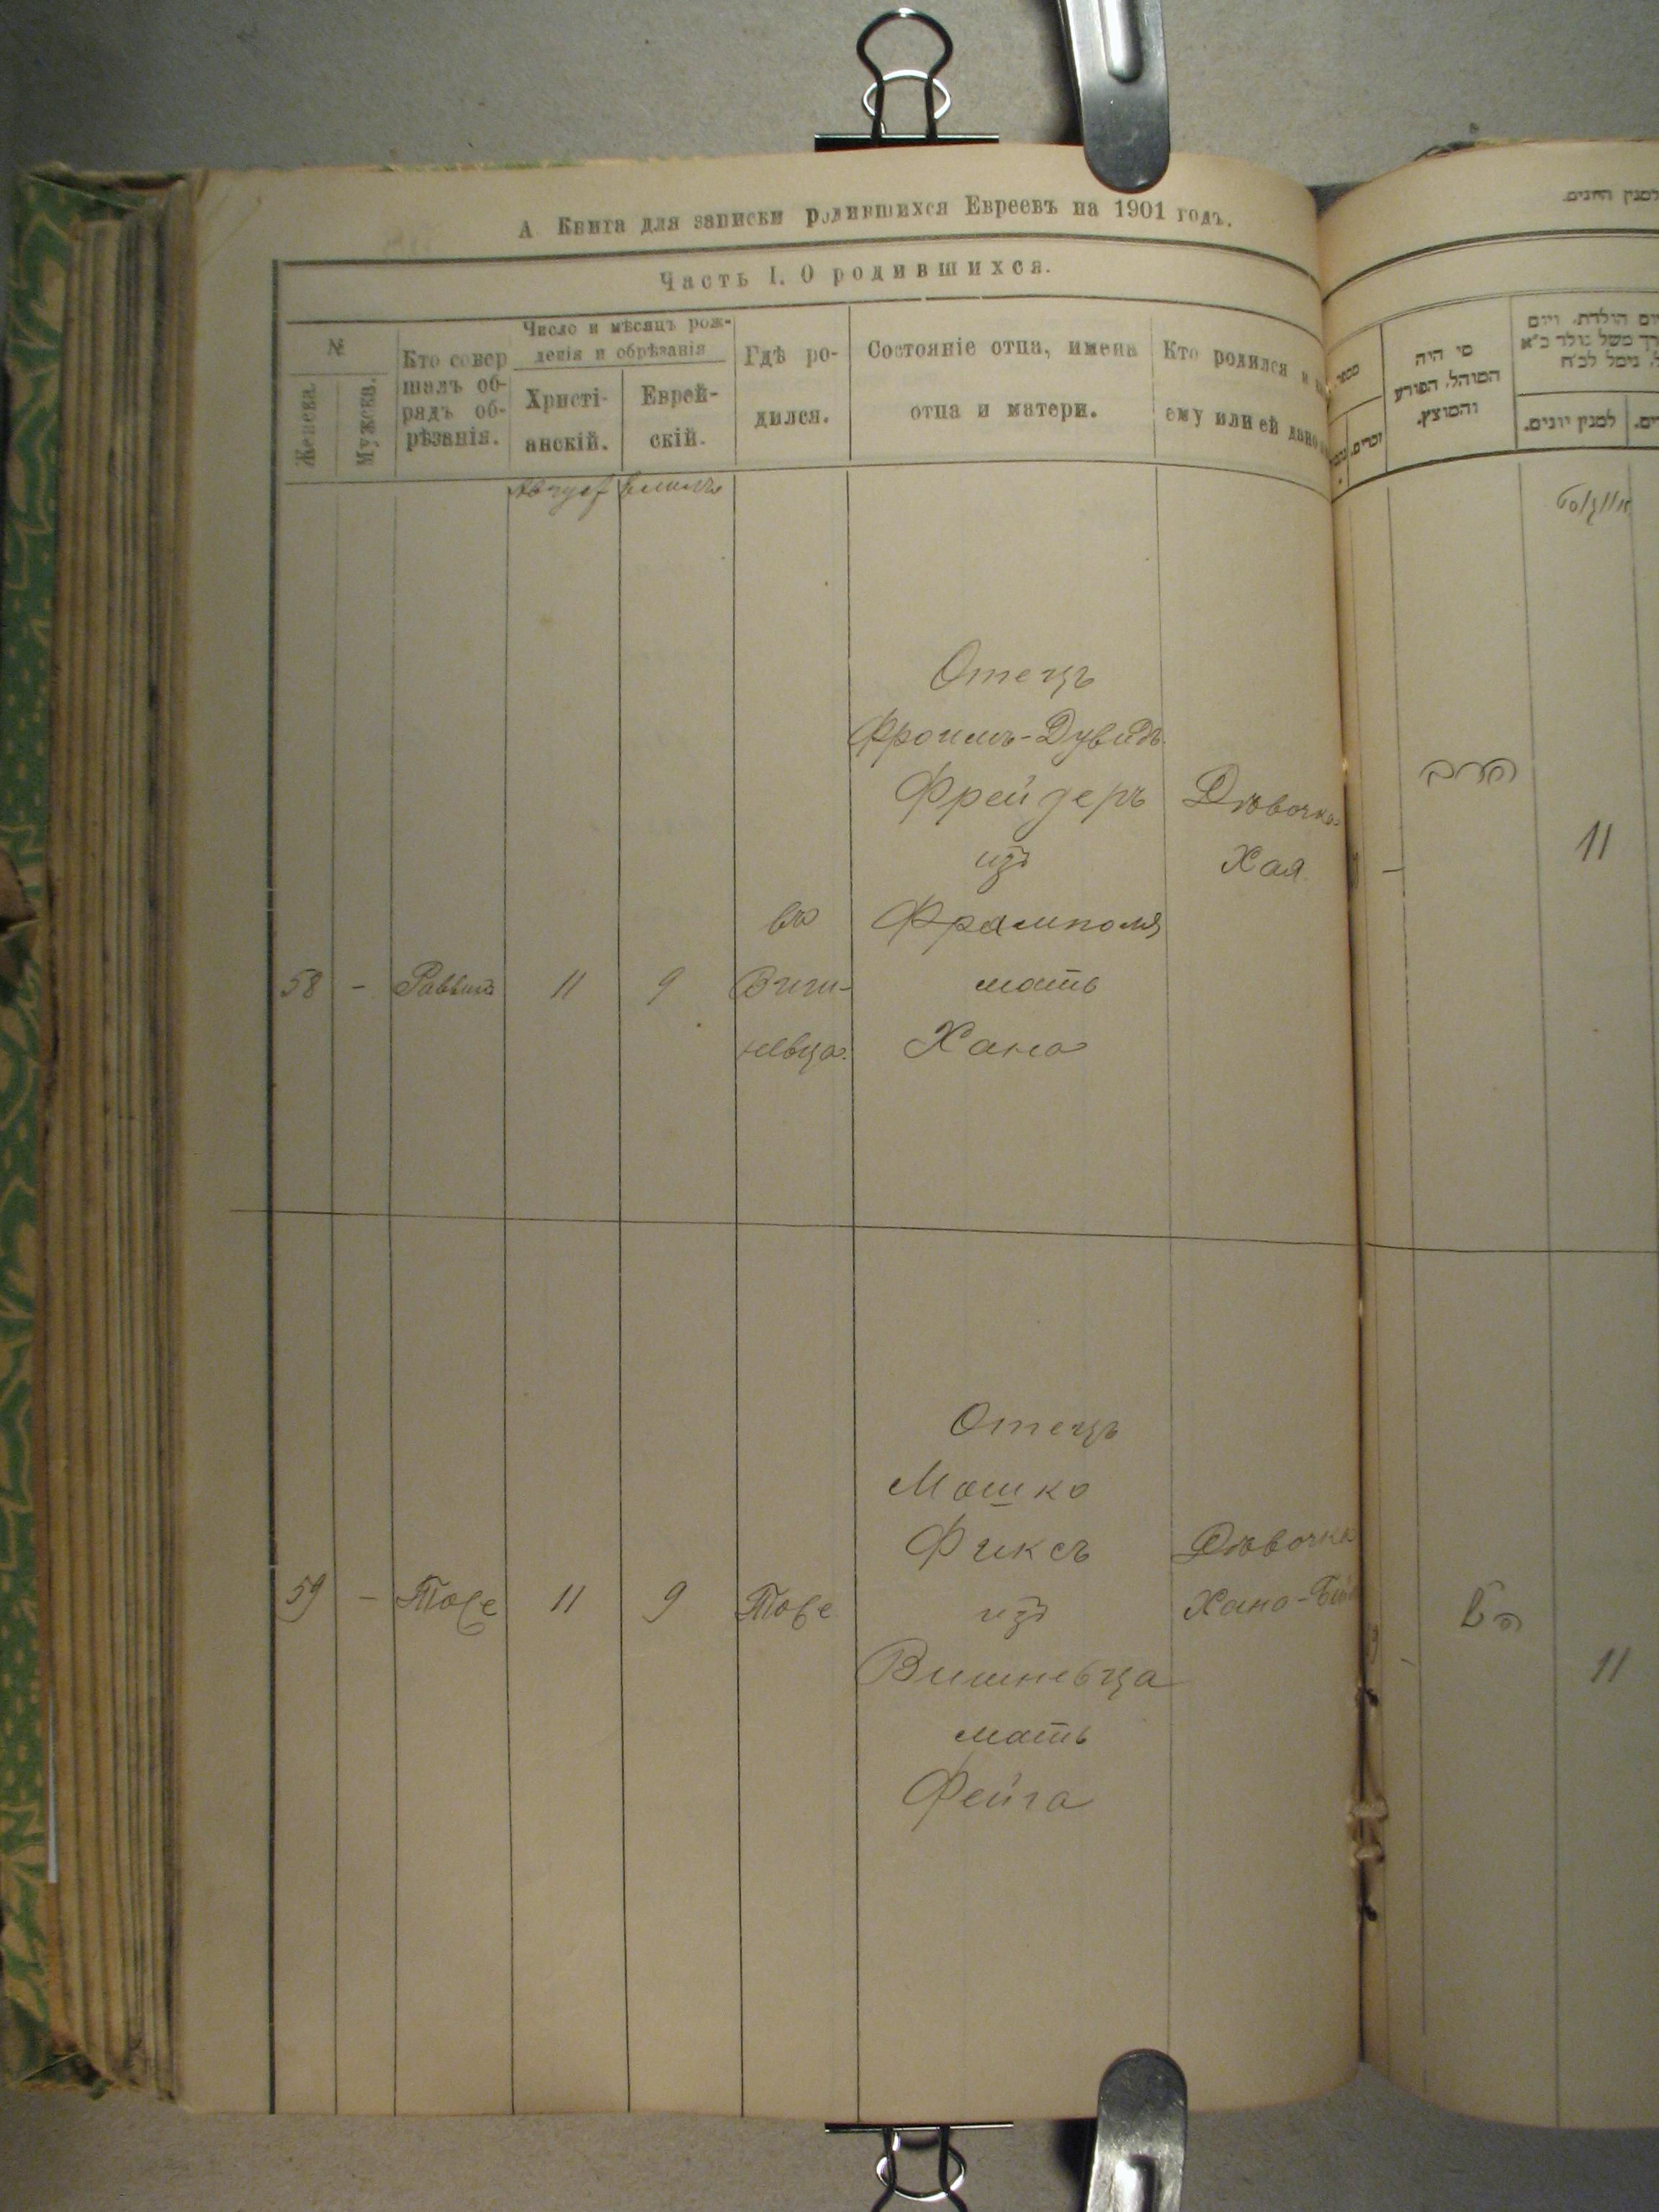 А Книга для записки родившихся Евреевъ на 1901 годъ.
Часть I. О родившихся.
№
Женска.
Мужска.
Кто совер
шалъ об-
рядъ об-
рѣзанія.
Число и мѣсяцъ рож-
денія и обрѣзанія
Христі-
анскій.
Еврей-
скій.
Гдѣ ро-
дился.
Состояніе отца, имена
отца и матери.
Кто родился и
ему или ей дано
Август
58 - Раввинъ 11 9
въ
Виш-
невца
Отецъ
Фроимъ-Дувидъ
Фрейдеръ
изъ
Фрамполя
мать
Хана
Дѣвочка
Хая
59 - Тоже 11 9 Тоже
Отецъ
Мошко
Фиксъ
изъ
Вишневца
мать
Фейга
Дѣвочка
Хана-
למנין החגים.
מי היה
המוהל, הפורע
והמוצץ.
זכרים.
למנין יונים.
אויגוסט
הרב
11
11